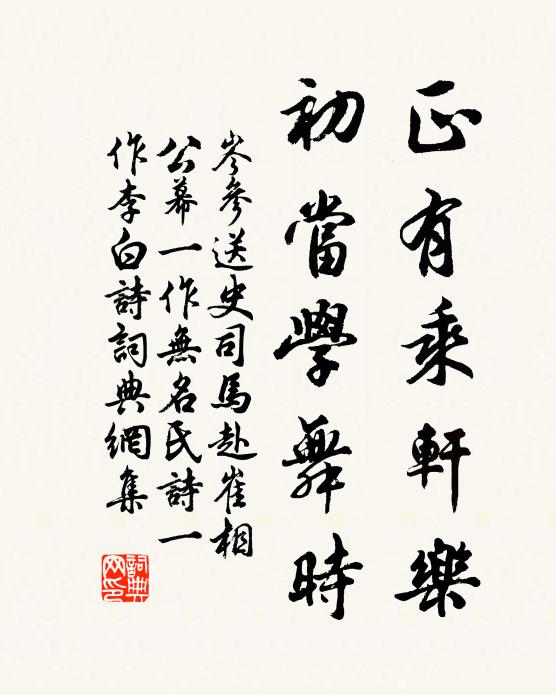 正有乘軒樂
初當學舞時
岑參送史司馬赴崔相
公幕一作無名氏詩一
作李白詩詞典網集
詞典
网印